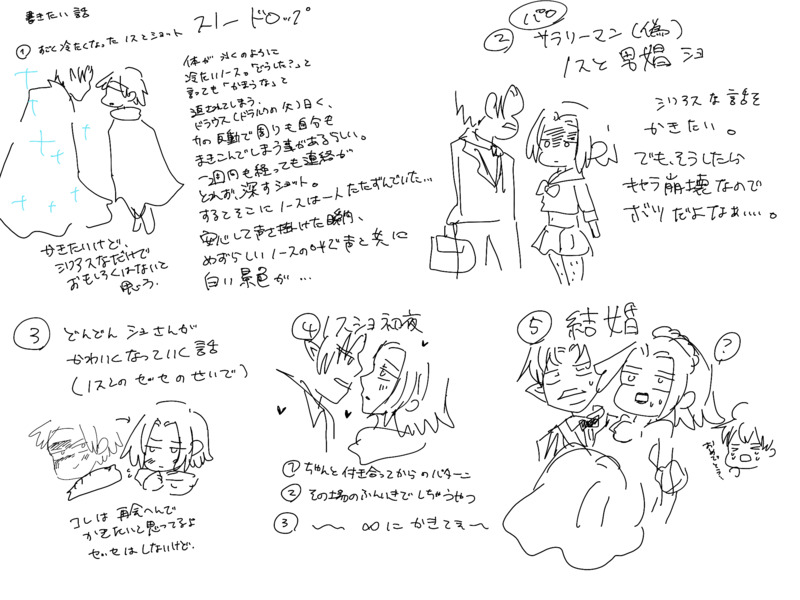 書きたい話
① すごく冷たくなったノスとショット
スノードロップ
体が氷のように
冷たいノース。「どうした?」って
言っても「かまうな」って
返されてしまう。
ドラウス(ドラルク)の父)曰く、
力の反動で周りも自分も
まきこんでしまう事があるらしい。
一週間も経っても連絡が
とれず、深すショット。
するとそこにノースは一人たたずんでいた…
安心して声を掛けた瞬間、
めずらしいノースの叫び声と共に
白い景色が…
かきたいけど、
シリアスなだけで
おもしろくはないと
思ふ。
② パロ
サラリーマン(偽)
ノスと男娼ショ
シリアスな話を
かきたい。
でも、そうしたら
キャラ崩壊なので
ボツだよなぁ…。
③ どんどんショさんが
かわいくなっていく話
(ノスとゼゼのせいで)
コレは再会へんで
かきたいと思ってるよ
ゼゼはしないけど。
④ ノスショ初夜
① ちゃんと付き合ってからのパターン
② その場のふんいきでしちゃうやつ
③ 〜 ∞にかきてぇ〜
⑤ 結婚
?